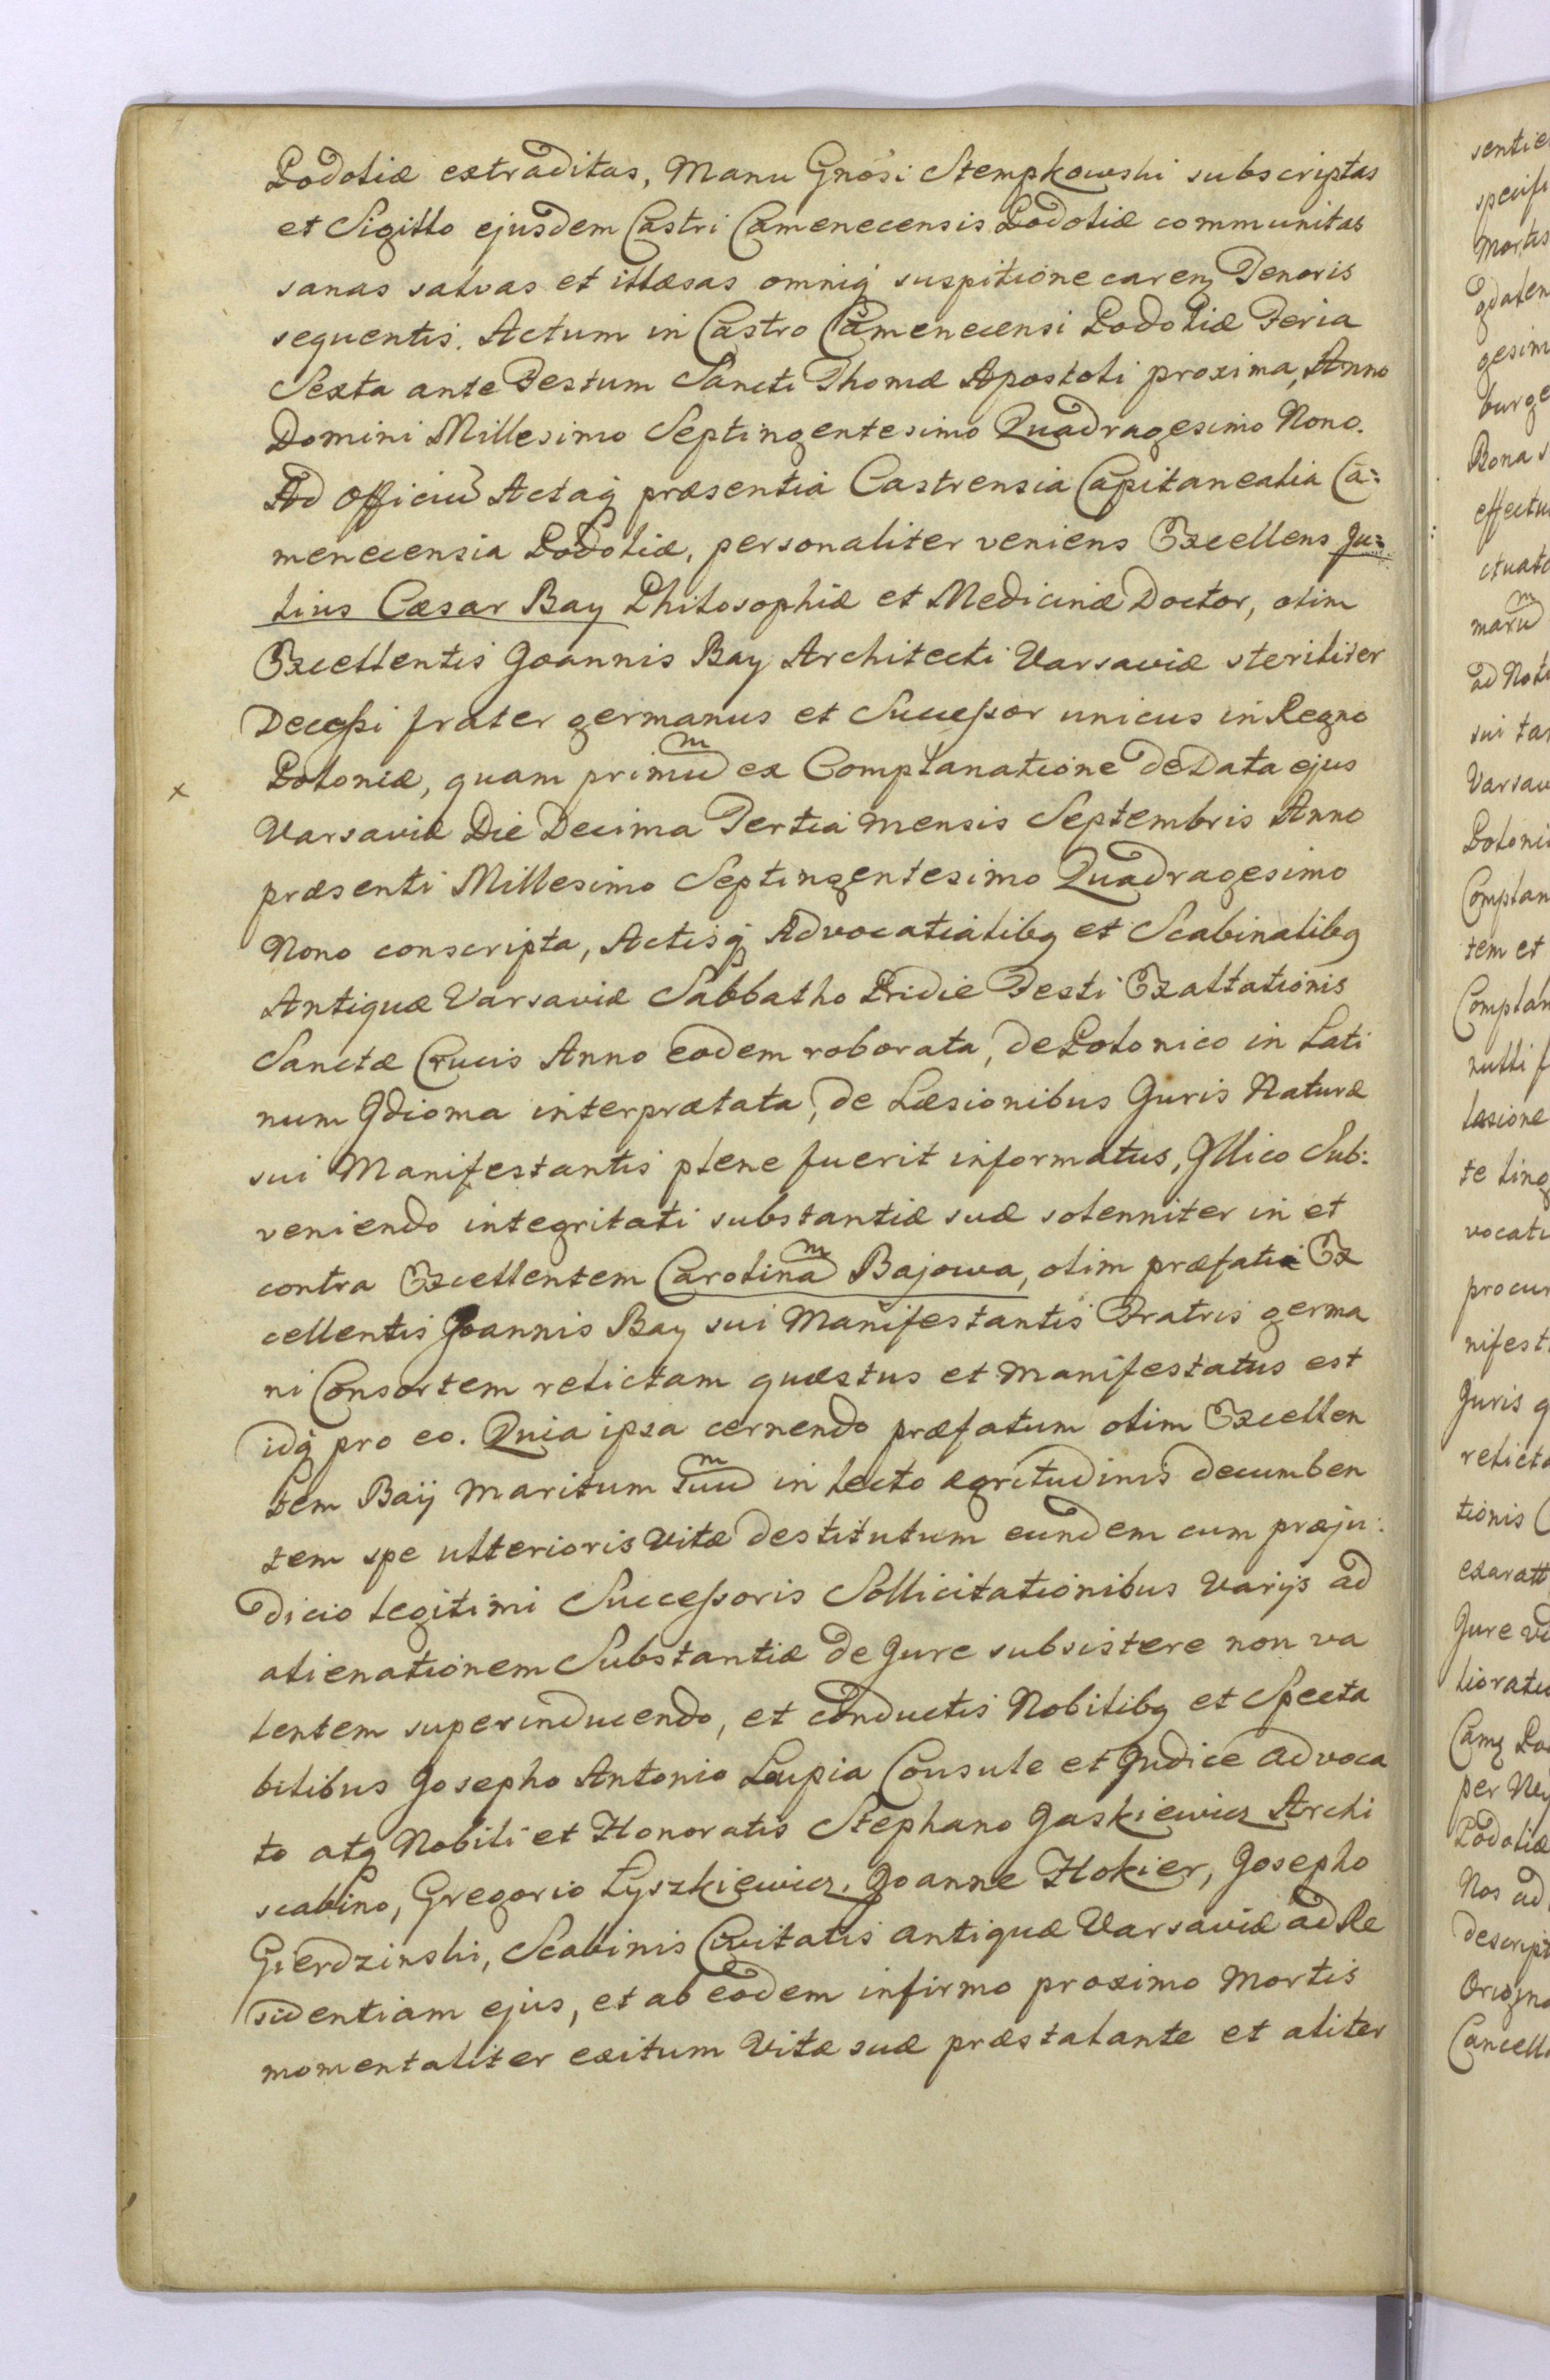 Podoliæ extraditas, Manu Gnosi Stempkowski subscriptas
et Sigillo ejusdem Castri Camenecensis Podoliæ communitas
sanas salvas et illæsas omniq suspitione caren Tenoris
sequentis. Actum in Castro Camenecensi Podoliæ Feria
Sexta ante Festum Sancti Thomæ Apostoli proxima, Anno
Domini Millesimo Septingentesimo Quadragesimo Nono.
Ad Officiu Actaq præsentia Castrensia Capitanealia Ca=
menecensia Podoliæ, personaliter veniens Excellens Ju=
lius Cæsar Bay Philosophiæ et Medicinæ Doctor, olim
Excellentis Joannis Bay Architecti Varsaviæ steriliter
Decessi frater germanus et Successor unicus in Regno
Poloniæ, quam primum ex Complanatione de Data ejus
x Varsaviæ Die Decima Tertia mensis Septembris Anno
præsenti Millesimo Septingentesimo Quadragesimo
Nono conscripta, Actisq Advocatialibq et Scabinalibq
Antiquæ Varsaviæ Sabbatho Pridie Festi Exaltationis
Sanctæ Crucis Anno eodem roborata, de Polonico in Lati
num Idioma interprætata, de Læsionibus Juris Naturæ
sui Manifestantis plene fuerit informatus, Illico Sub:
veniendo integritati substantiæ suæ solenniter in et
contra Excellentem Carolinam Bajowa, olim præfati Ex
cellentis Joannis Bay sui Manifestantis Fratris germa
ni Consortem relictam quæstus et manifestatus est
idq pro eo. Quia ipsa cernendo præfatum olim Excellen
tem Baij Maritum suum in lecto ægritudinis decumben
tem spe ulterioris Vitæ destitutum eundem cum præju:
dicio legitimi Successoris Sollicitationibus Varijs ad
alienationem Substantiæ de Jure subsistere non va
lentem superinducendo, et conductis Nobilibq et Specta
bilibus Josepho Antonio Lupia Consule et Judice advoca
to atq Nobili et Honoratis Stephano Jaskiewicz Archi
scabino, Gregorio Łyszkiewicz, Joanne Hokier, Josepho
Gierdzinski, Scabinis Civitatis antiquæ Varsaviæ ad Re
sidentiam ejus, et ab eodem infirmo proximo Mortis
momentaliter exitum Vitæ suæ præstalante et aliter